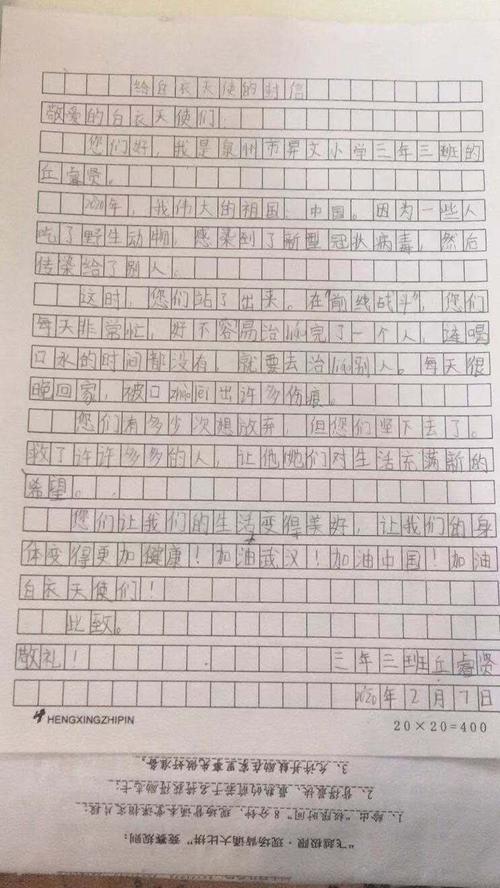 给白衣天使的封信
敬爱的白衣天使们：
您们好，我是泉州市昇文小学三年三班的
丘睿贤。
2020年，我伟大的祖国：中国。因为一些人
吃了野生动物，感染到了新型冠状病毒，然后
传染给了别人。
这时，您们站了出来。在"前线战斗"，您们
每天非常忙，好不容易治liáo完了一个人，连喝
口水的时间都没有，就要去治liáo别人。每天很
晚回家，被口zhào出许多伤痕。
您们有多少次想放弃，但您们坚下去了。
救了许许多多的人，让他她们对生活充满新的
希望。
您们让我们的生活变得美好，让我们的身
体变得更加健康！加油武汉！加油中国！加油
白衣天使们！
此致。
敬礼！
三年三班丘睿贤
2020年2月7日
HENGXINGZHIPIN
20×20=400
"飞越极限·现场背诵大比拼"竞赛规则：